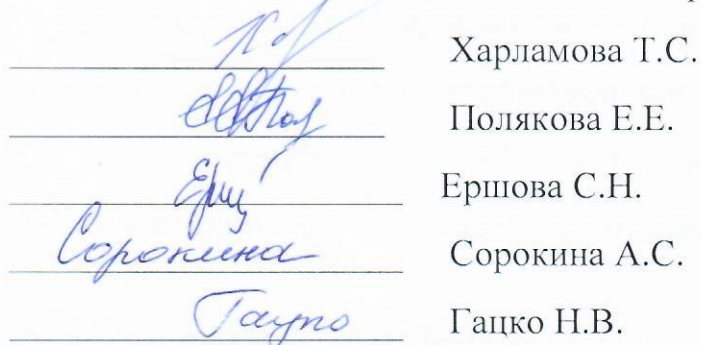 Харламова Т.С.
Полякова Е.Е.
Ерш Ершова С.Н.
Сорокина Сорокина А.С.
Гацко Гацко Н.В.